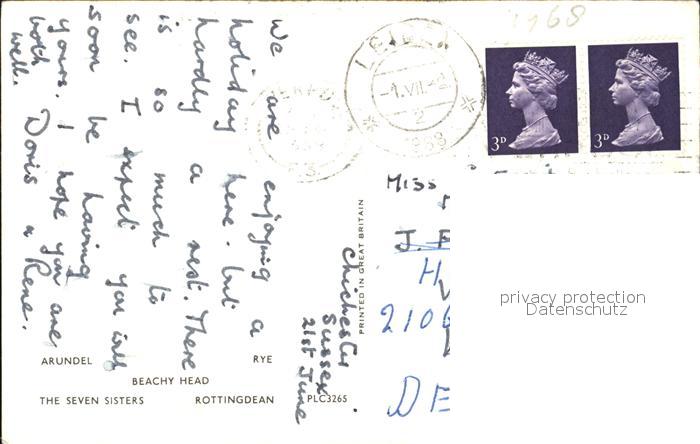 Chichester
Sussex.
21st June
We are enjoying a
holiday here. but
hardly a rest. There
is so much to
see. I expect you will
soon be having
yours. I hope you are
both well.
Doris & Rene.
ARUNDEL RYE
BEACHY HEAD
THE SEVEN SISTERS ROTTINGDEAN
PLC3265
PRINTED IN GREAT BRITAIN
1968
-1.VII.-2
2
1968
3D
3D
MISS
J. F
H
2106
DE
privacy protection
Datenschutz